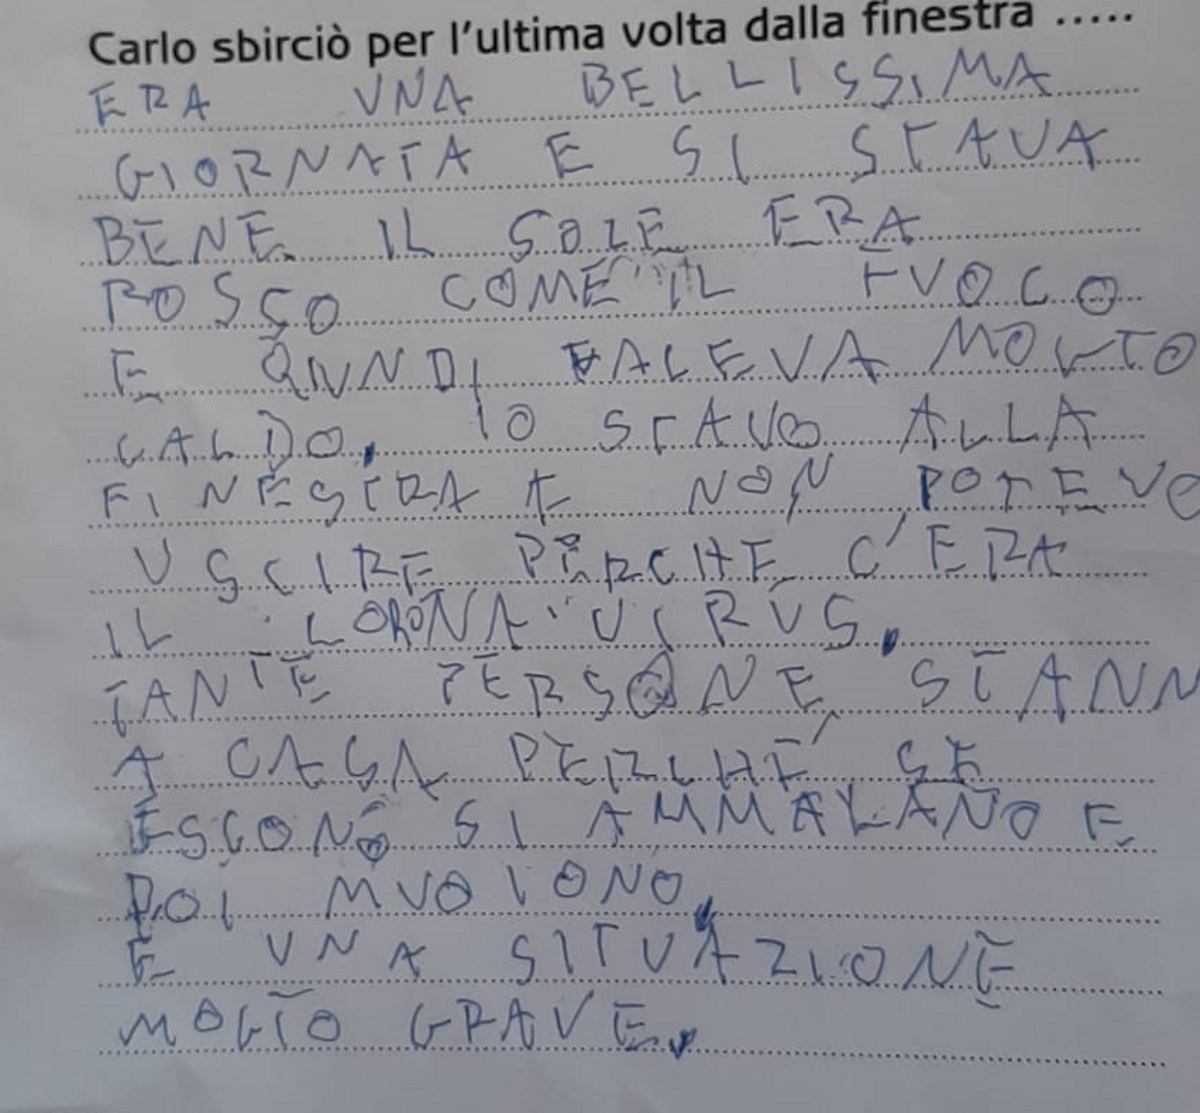 Carlo sbirciò per l'ultima volta dalla finestra .....
ERA UNA BELLISSIMA
GIORNATA E SI STAVA
BENE. IL SOLE ERA
ROSSO COME IL FUOCO
E QIUNDI FALEVA MOLTO
CALDO, IO STAVO ALLA
FINESTRA E NON POTEVO
USCIRE PERCHE C'ERA
IL CORONA VIRUS.
TANTE PERSONE STANN
A CASA PERCHÉ SE
ESCONO SI AMMALANO E
POI MUOIONO,
E UNA SITUAZIONE
MOLTO GRAVE.